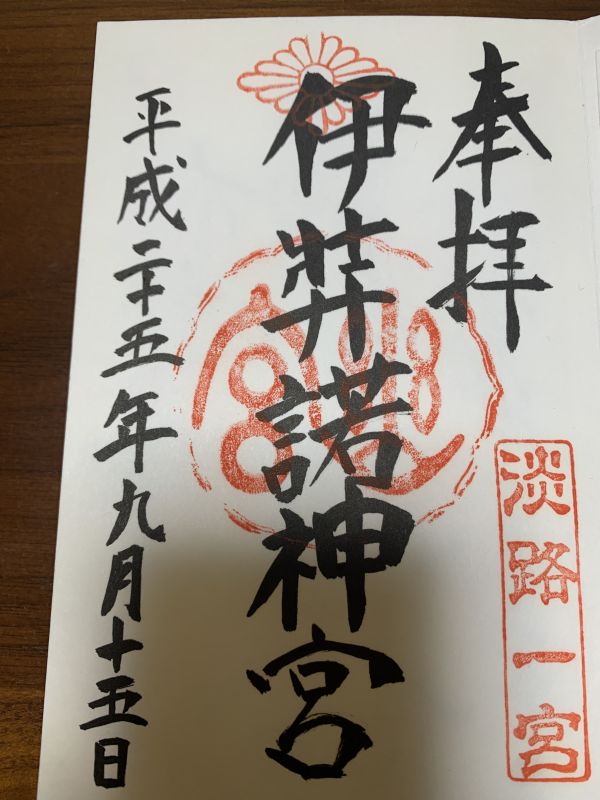 奉拝
淡路一宮
伊弉諾神宮
平成二十五年九月十五日